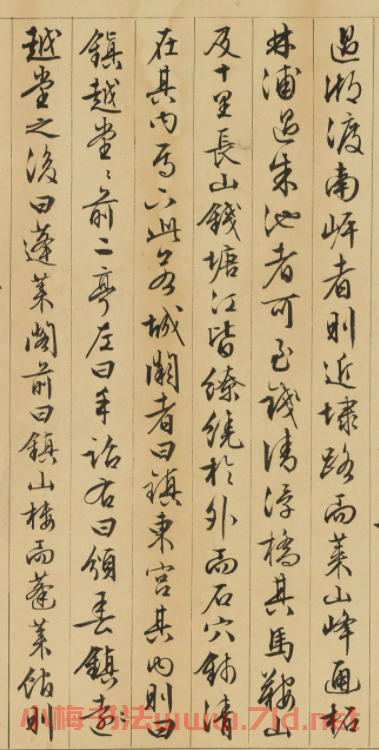 過湘渡南岸者則近埭路而萊山峰通柘
林浦過朱池者可至錢清浮橋其馬鞍山
及十里長山錢塘江皆繚繞於外而石穴
在其内焉六此名城闉者曰鎮東宫其内則曰
鎮越堂堂前二亭左曰手詰右曰頒春鎮
越堂之後曰蓬萊閣前曰鎮山樓而蓬萊館則
小梅书法www.71d.net